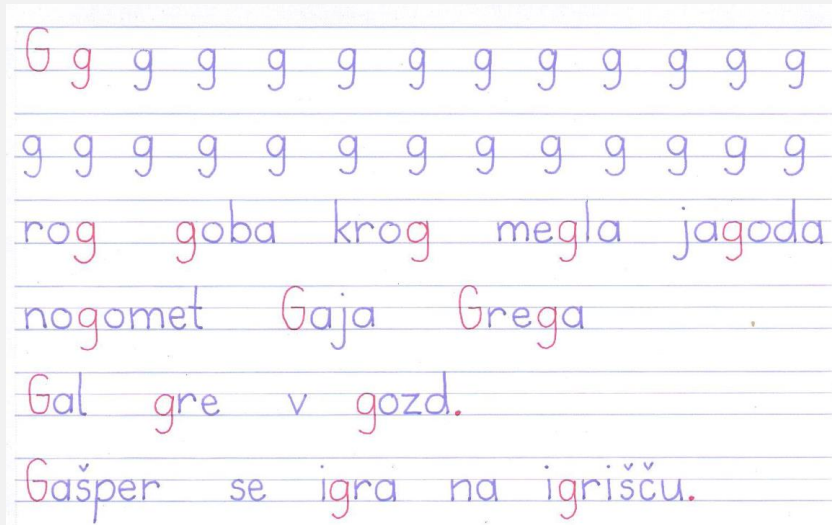 G g g g g g g g g g g g g
g g g g g g g g g g g g g
rog goba krog megla jagoda
nogomet Gaja Grega
Gal gre v gozd.
Gašper se igra na igrišču.